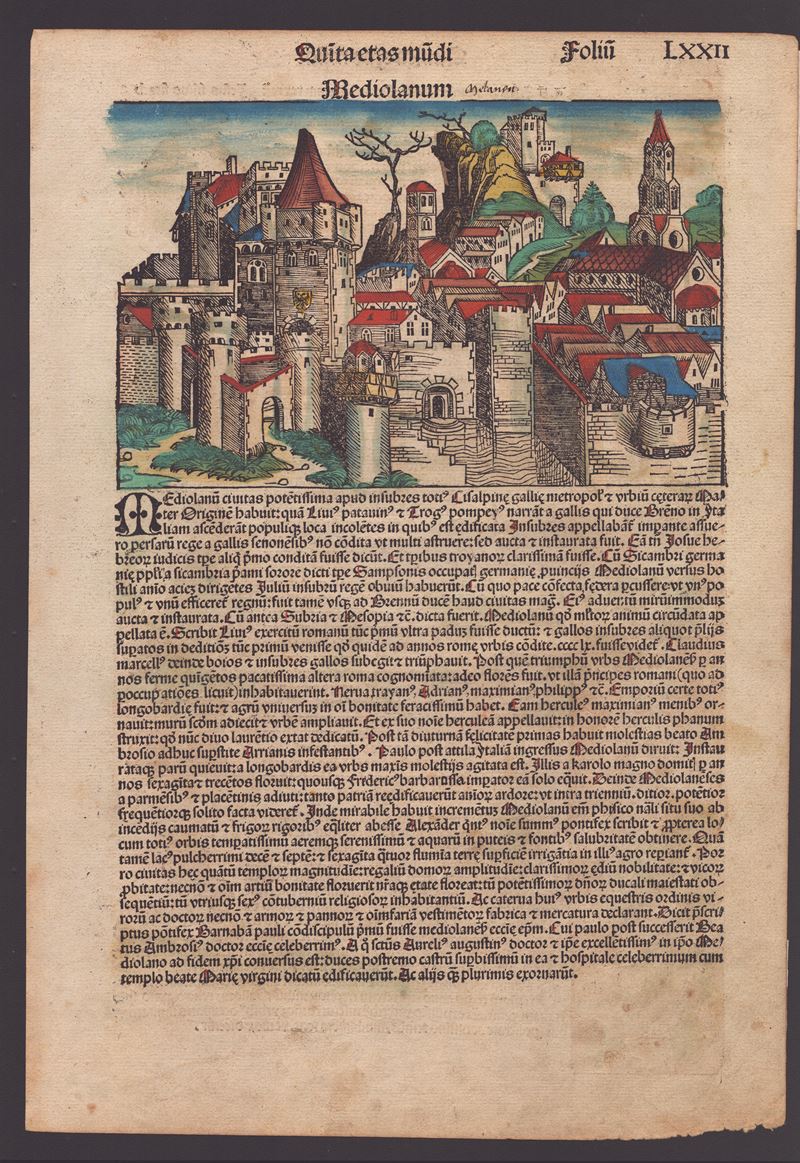 Quīta etas mūdi
Foliū LXXII
Mediolanum
MEdiolanū ciuitas potētissima apud insubres totiꝰ Cisalpinę gallię metropol' ⁊ vrbiū cęteraꝝ Ma/
ter Originē habuit: quā Liuiꝰ patauinꝰ ⁊ Trogꝰ pompeyꝰ narrāt a gallis qui duce Brēno in Ita
liam ascēderāt populiqꝫ loca incolētes in quibꝰ est ędificata Insubres appellabāt̄ impante assue/
ro persarū rege a gallis senonēsibꝰ nō cōdita vt multi astruere: sed aucta ⁊ instaurata fuit. Eā tn̄ Josue he/
breoꝝ iudicis tꝑe aliq̄ p̄mo conditā fuisse dicūt. Et tꝑibus troyanoꝝ clarissimā fuisse. Cū Sicambri germa
nię pp̄li a sicambria p̄ami sorore dicti tꝑe Sampsonis occupatꝭ germanię ꝓuincijs Mediolanū versus ho
stili aīo acies dirigētes Juliū insubrū regē obuiū habuerūt. Cū quo pace cōfecta fędera ꝑcussere: vt vnꝰ po
pulꝰ ⁊ vnū efficeret̄ regnū: fuit tamē vsqꝫ ad Brennū ducē haud ciuitas maḡ. Eiꝰ aduetū mirūimmodū
aucta ⁊ instaurata. Cū antea Subria ⁊ Mesopia ⁊c̄. dicta fuerit. Mediolanū qd̓ mīstoꝝ animū circūdata ap
pellata ē. Scribit Liuiꝰ exercitū romanū tūc p̄mū vltra padū fuisse ductū: ⁊ gallos insubres aliquot p̄lijs
suꝑatos in deditiōe tūc primū venisse qd̓ quidē ad annos rome vrbis cōdite.cccc lx. fuisse videt̄. Claudius
marcellꝰ deinde boios ⁊ insubres gallos subegit ⁊ triūphauit. Post quē triumphū vrbs Mediolanēs̄ ꝑ an
nos ferme quīgētos pacatissima altera roma cognomīata: adeo flores fuit. vt illā p̄ncipes romani (quo ad
ꝑ occupatiōes licuit) inhabitauerint. Nerua, trayanꝰ, Adrianꝰ, maximianꝰ philippꝰ ⁊c̄. Emporiū certe totiꝰ
longobardię fuit: ⁊ agrū vniuersuꝫ in oī bonitate feracissimū habet. Eam herculeꝰ maximianꝰ menibꝰ or/
nauit: murū scd̓m adiecit ⁊ vrbē ampliauit. Et ex suo noīe herculeā appellauit: in honorē herculis phanum
struxit: qd̓ nūc diuo laurētio extat dedicatū. Post tā diuturnā felicitatē primas habuit molestias beato Am
brosio adhuc suꝑstite Arrianis infestantibꝰ. Paulo post attila Italiā ingressus Mediolanū diruit: Instau
rataqꝫ parū quieuit: a longobardis ea vrbs maxīs molestijs agitata est. Illis a karolo magno domitꝭ ꝑ an
nos sexagīta ⁊ trecētos floruit: quousqꝫ Fredericꝰ barbarossa imꝑator eā solo eq̄uit. Deinde Mediolanēses
a parmēsibꝰ ⁊ placētinis adiuti: tanto patriā reędificauerūt amoꝝ ardore: vt intra trienniū. ditior. potētior
freq̄ntiorqꝫ solito facta videret̄. Inde mirabile habuit incremētuꝫ Mediolanū em̄ phisico nāli situ suo ab
incēdijs caumatū ⁊ frigoꝝ rigoribꝰ eq̄liter abesse Alexāder q̄ntꝰ noīe summꝰ pontifex scribit ⁊ ꝓpterea lo/
cum totiꝰ orbis temꝑatissimū aeremqꝫ serenissimū ⁊ aquarū in puteis ⁊ fontibꝰ salubritatē obtinere. Quā
tamē lacꝰ pulcherrimi decē ⁊ septē: ⁊ sexagīta q̄tuor flumīa terrę suꝑficiē irrigātia in illiꝰ agro repiant̄. Por
ro ciuitas hec quātū temploꝝ magnitudīe: regaliū domoꝝ amplitudīe: clarissimoꝝ ędiū nobilitate: ⁊ vicoꝝ
ꝓbitate: necnō ⁊ oīm artiū bonitate floruerit nr̄aqꝫ etate floreat: tū potētissimoꝝ dn̄oꝝ ducali maiestati ob/
sequētiū: tū vtriusqꝫ sexꝰ cōtuberniū religiosoꝝ inhabitantiū. Ac caterua huiꝰ vrbis equestris ordinis vi/
rorū ac doctoꝝ necnō ⁊ armoꝝ ⁊ pannoꝝ ⁊ oīmfariā vestimētoꝝ fabrica ⁊ mercatura declarant. Dicit p̄scri/
ptus pōtifex Barnabā pauli cōdiscipulū p̄mū fuisse mediolanēs̄ eccīe ep̄m. Cui paulo post successerit Bea
tus Ambrosiꝰ doctor eccīe celeberrimꝰ. A q̄ sctūs Aureliꝰ augustinꝰ doctor ⁊ ip̄e excellētissimꝰ in ip̄o Me/
diolano ad fidem xp̄i conuersus est: duces postremo castrū suꝑbissimū in ea ⁊ hospitale celeberrimum cum
templo beate Marię virgini dicatū edificauerūt. Ac alijs q̄ꝫ plurimis exornarūt.